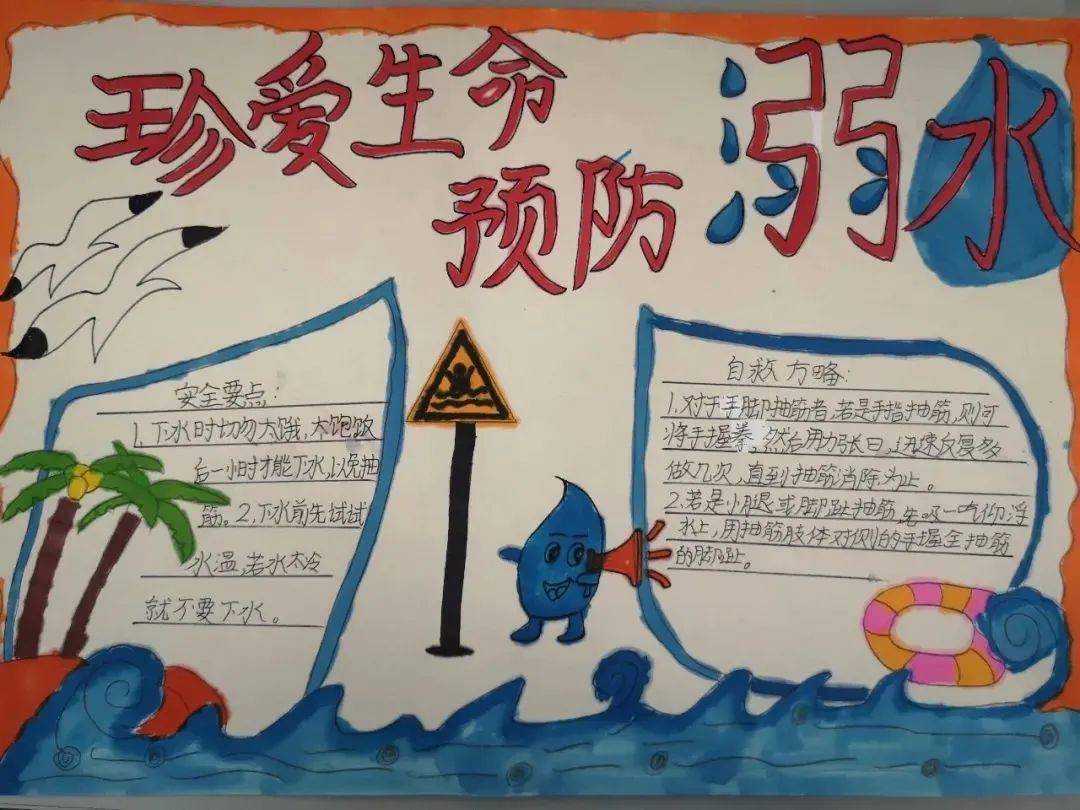 珍爱生命
预防溺水
安全要点:
1.下水时切勿太饿,太饱饭
后一小时才能下水,以免抽
筋。2.下水前先试试
水温,若水太冷
就不要下水。
自救方略:
1.对于手脚抽筋者,若是手指抽筋,则可
将手握拳,然后用力张曰,迅速反复多
做几次,直到抽筋消除为止。
2.若是小腿或脚趾抽筋,先吸一气仰浮
水上,用抽筋肢体对侧的手握全抽筋
的脚趾。